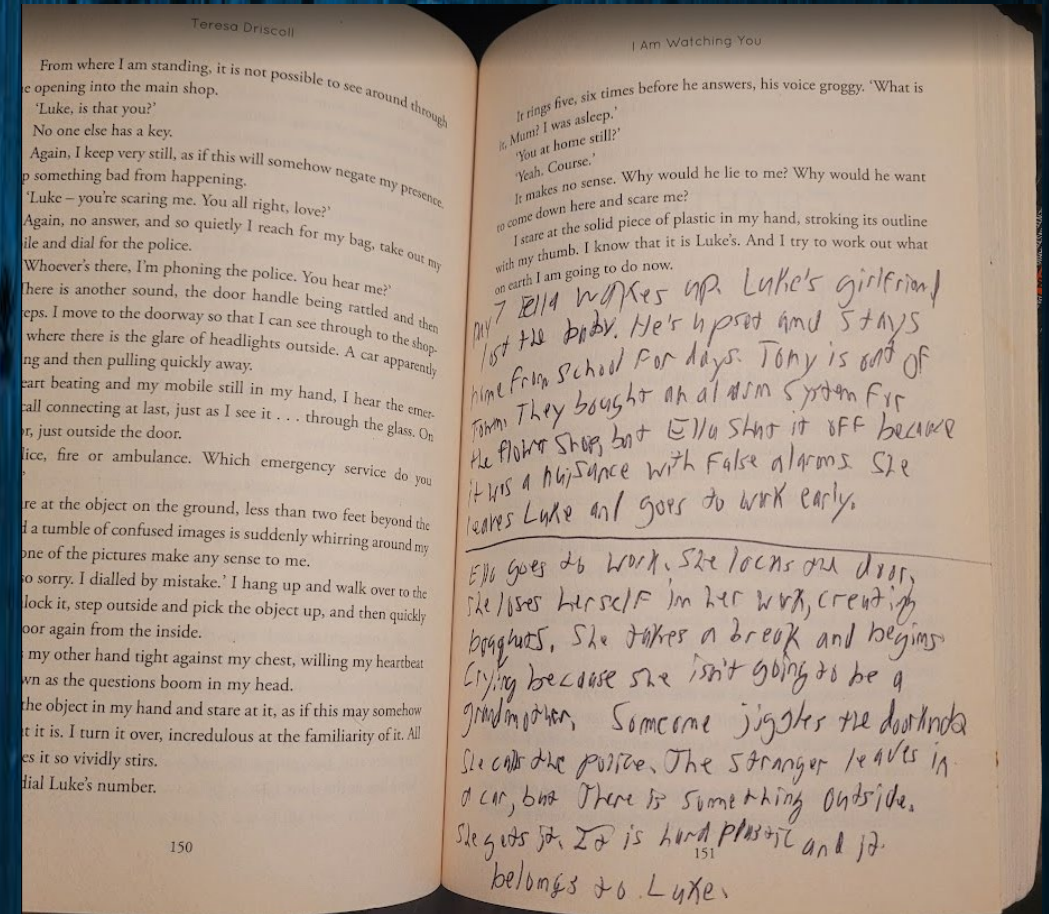 Teresa Driscoll
From where I am standing, it is not possible to see around through
e opening into the main shop.
'Luke, is that you?'
No one else has a key.
Again, I keep very still, as if this will somehow negate my presence.
p something bad from happening.
'Luke – you're scaring me. You all right, love?'
Again, no answer, and so quietly I reach for my bag, take out my
ile and dial for the police.
Whoever's there, I'm phoning the police. You hear me?'
There is another sound, the door handle being rattled and then
eps. I move to the doorway so that I can see through to the shop-
where there is the glare of headlights outside. A car apparently
ng and then pulling quickly away.
eart beating and my mobile still in my hand, I hear the emer-
call connecting at last, just as I see it . . . through the glass. On
or, just outside the door.
lice, fire or ambulance. Which emergency service do you
'
re at the object on the ground, less than two feet beyond the
d a tumble of confused images is suddenly whirring around my
one of the pictures make any sense to me.
so sorry. I dialled by mistake.' I hang up and walk over to the
lock it, step outside and pick the object up, and then quickly
oor again from the inside.
my other hand tight against my chest, willing my heartbeat
wn as the questions boom in my head.
the object in my hand and stare at it, as if this may somehow
t it is. I turn it over, incredulous at the familiarity of it. All
es it so vividly stirs.
dial Luke's number.
150
I Am Watching You
It rings five, six times before he answers, his voice groggy. 'What is
it, Mum? I was asleep.'
'You at home still?'
'Yeah. Course.'
It makes no sense. Why would he lie to me? Why would he want
to come down here and scare me?
I stare at the solid piece of plastic in my hand, stroking its outline
with my thumb. I know that it is Luke's. And I try to work out what
on earth I am going to do now.
Day 7 Ella wakes up. Luke's girlfriend
lost the baby. He's upset and stays
home from school for days. Tony is out of
Town. They bought an alarm system for
the flower shop, but Ella shut it off because
it was a nuisance with false alarms. She
leaves Luke and goes to work early.
Ella goes to work. She locks the door,
she loses herself in her work, creating
bouquets. She takes a break and begins
crying because she isn't going to be a
grandmother. Someone jiggles the doorknob
She calls the police. The stranger leaves in
a car, but There is something outside.
She gets it. It is hard plastic and it
151
belongs to Luke.